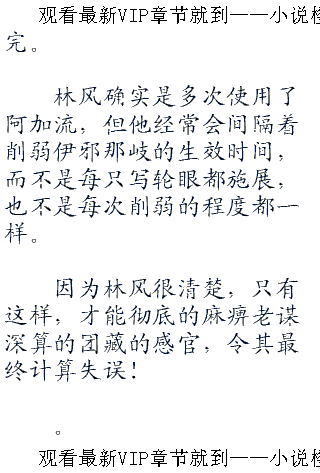 观看最新VIP章节就到——小说
完。
林风确实是多次使用了
阿加流，但他经常会间隔着
削弱伊邪那岐的生效时间，
而不是每只写轮眼都施展，
也不是每次削弱的程度都一
样。
因为林风很清楚，只有
这样，才能彻底的麻痹老谋
深算的团藏的感官，令其最
终计算失误！
。
观看最新VIP章节就到——小说